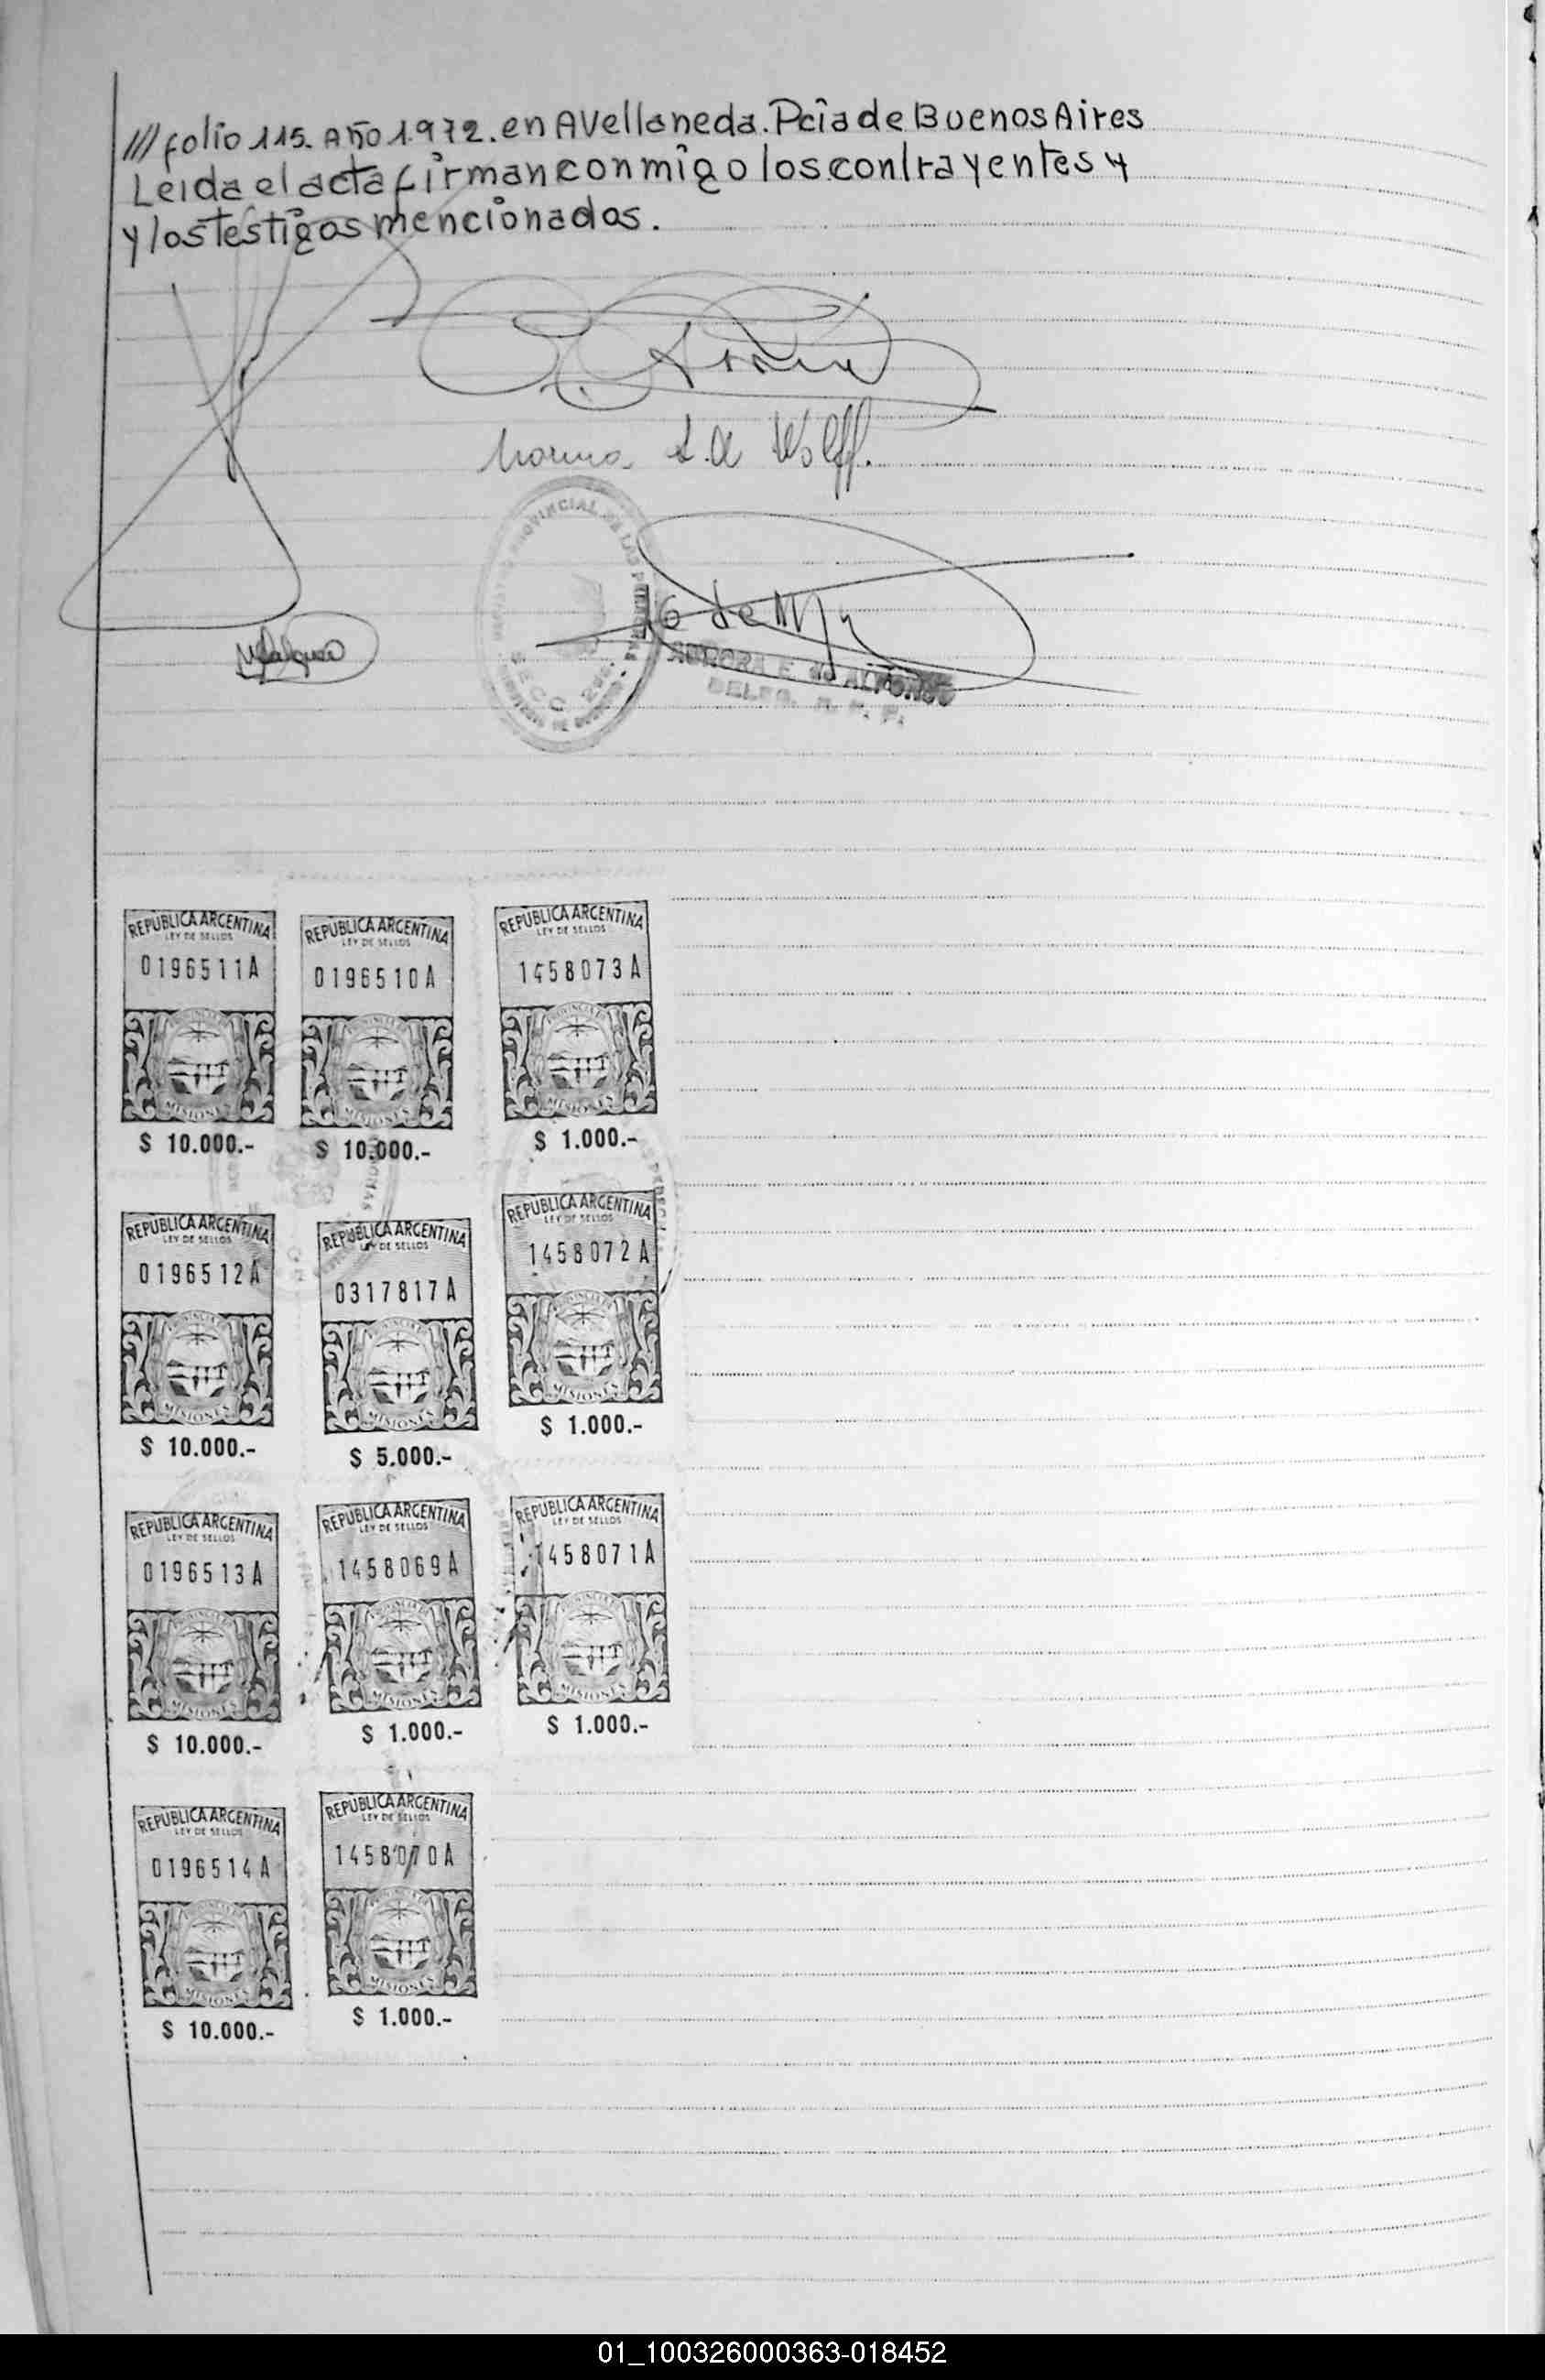 /// folio 115. Año 1.972. en Avellaneda. Pcia de Buenos Aires
Leida el acta firman conmigo los contrayentes y
y los testigos mencionados.
Norma L. A Wolff.
PROVINCIAL DE LAS PERSONAS
SECC.
AURORA E. de ALFONSO
DELEG. R. P. P.
REPUBLICA ARGENTINA
LEY DE SELLOS
0196511A
PROVINCIA
MISIONES
$ 10.000.-
REPUBLICA ARGENTINA
LEY DE SELLOS
0196510A
PROVINCIA
MISIONES
$ 10.000.-
REPUBLICA ARGENTINA
LEY DE SELLOS
1458073A
PROVINCIA
MISIONES
$ 1.000.-
REPUBLICA ARGENTINA
LEY DE SELLOS
0196512A
PROVINCIA
MISIONES
$ 10.000.-
REPUBLICA ARGENTINA
LEY DE SELLOS
0317817A
PROVINCIA
MISIONES
$ 5.000.-
REPUBLICA ARGENTINA
LEY DE SELLOS
1458072A
PROVINCIA
MISIONES
$ 1.000.-
REPUBLICA ARGENTINA
LEY DE SELLOS
0196513A
PROVINCIA
MISIONES
$ 10.000.-
REPUBLICA ARGENTINA
LEY DE SELLOS
1458069A
PROVINCIA
MISIONES
$ 1.000.-
REPUBLICA ARGENTINA
LEY DE SELLOS
1458071A
PROVINCIA
MISIONES
$ 1.000.-
REPUBLICA ARGENTINA
LEY DE SELLOS
0196514A
PROVINCIA
MISIONES
$ 10.000.-
REPUBLICA ARGENTINA
LEY DE SELLOS
1458070A
PROVINCIA
MISIONES
$ 1.000.-
01_100326000363-018452